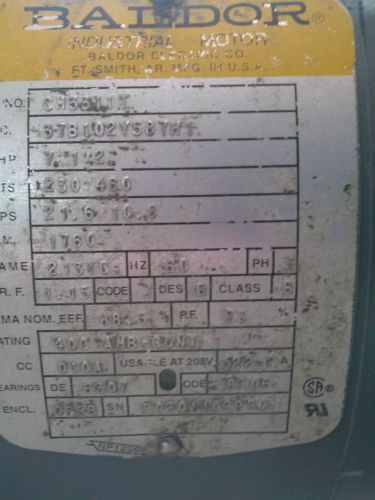 BALDOR®
INDUSTRIAL MOTOR
BALDOR ELECTRIC CO.
FT. SMITH, AR. MFG. IN U.S.A.
NO.
C. 37B102Y587H1
HP 7 1/2
TS 230/460
PS 21.6/10.8
M. 1760
AME HZ 60 PH 3
R.F. 1.15 CODE DES B CLASS B
MA NOM. EFF. 88.5 % P.F. %
ATING 40C AMB-CONT
CC 010A USABLE AT 208V A
EARINGS DE 6307 ODE 6206
ENCL. SN
NP1256